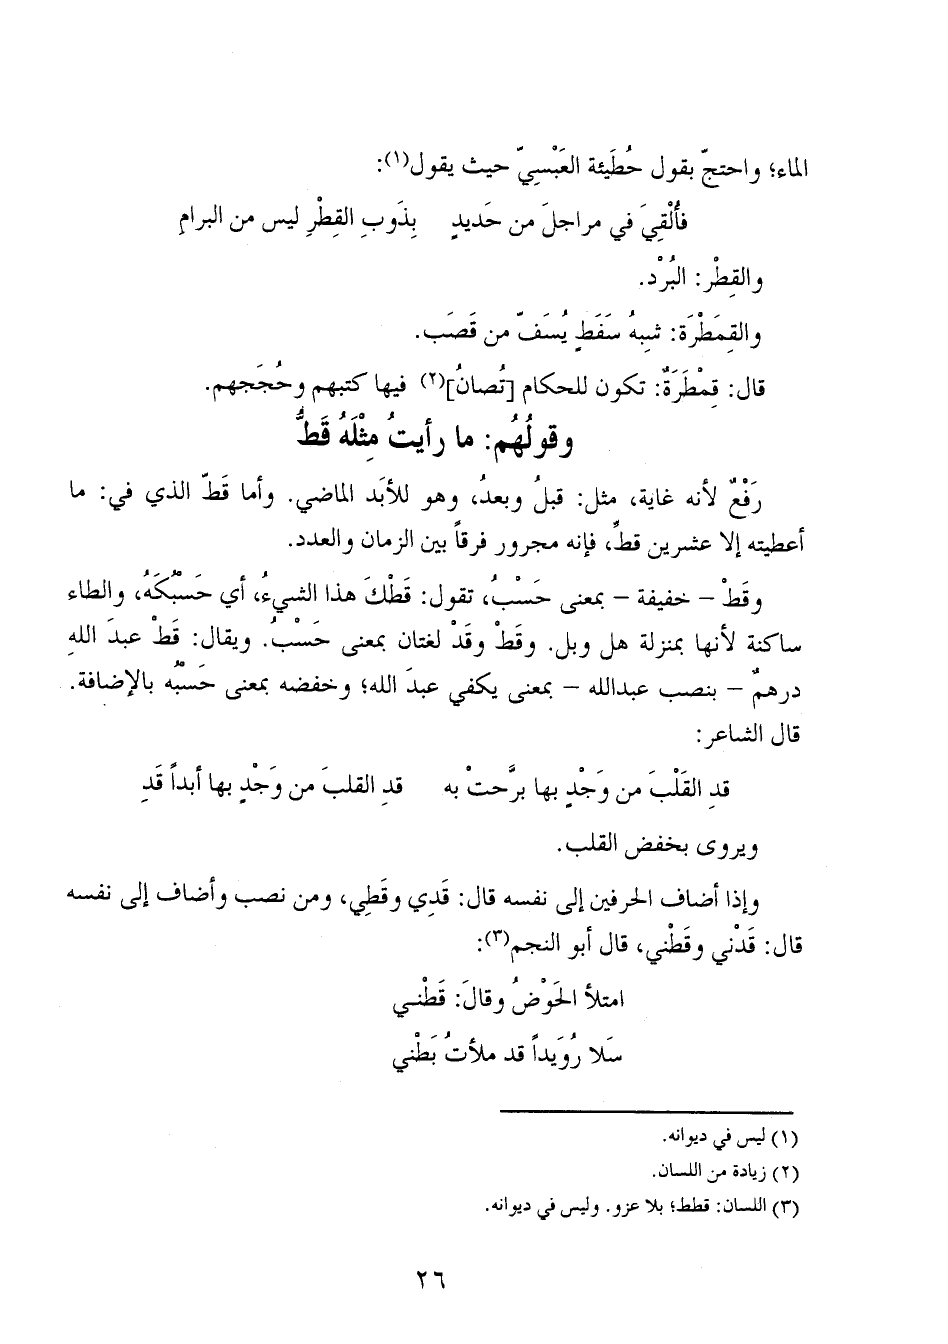 الماء؛ واحتجّ بقول حُطَيئة العَبْسِيّ حيث يقول(١):
فأُلْقِيَ في مراجلَ من حَديدٍ بِذَوبِ القِطْرِ ليس من البرامِ
والقِطْر: البُرْد.
والقِمَطْرَة: شبهُ سَفَطٍ يُسَفّ من قَصَب.
قال: قِمْطَرَةٌ: تكون للحكام [تُصانُ](٢) فيها كتبهم وحُجَجهم.
وقولُهُم: ما رأيتُ مِثْلَهُ قَطُّ
رَفْعٌ لأنه غاية، مثل: قبلُ وبعدُ، وهو للأبَد الماضي. وأما قَطّ الذي في: ما
أعطيته إلا عشرين قطٍّ، فإنه مجرور فرقاً بين الزمان والعدد.
وقَطْ – خفيفة – بمعنى حَسْبُ، تقول: قَطْكَ هذا الشيءُ، أي حَسْبُكَهُ، والطاء
ساكنة لأنها بمنزلة هل وبل. وقَطْ وقَدْ لغتان بمعنى حَسْبُ. ويقال: قَطْ عبدَ اللهِ
درهمٌ – بنصب عبدالله – بمعنى يكفي عبدَ الله؛ وخفضه بمعنى حَسْبُه بالإضافة.
قال الشاعر:
قدِ القَلْبَ من وَجْدٍ بها برَّحتْ به قدِ القلبَ من وَجْدٍ بها أبداً قَدِ
ويروى بخفض القلب.
وإذا أضاف الحرفين إلى نفسه قال: قَدِي وقَطِي، ومن نصب وأضاف إلى نفسه
قال: قَدْني وقَطْني، قال أبو النجم(٣):
امتلأ الحَوْضُ وقالَ: قَطْنـي
سَلا رُوَيداً قد ملأتُ بَطْني
(١) ليس في ديوانه.
(٢) زيادة من اللسان.
(٣) اللسان: قطط؛ بلا عزو. وليس في ديوانه.
٢٦